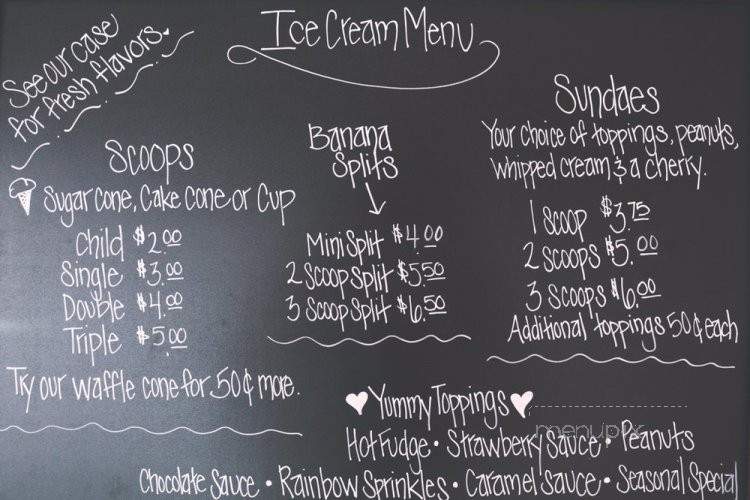 Ice Cream Menu
See our case
for fresh flavors.
Scoops
Sugar Cone, Cake Cone or Cup
Child $2.00
Single $3.00
Double $4.00
Triple $5.00
Try our waffle cone for 50¢ more.
Banana
Splits
Mini Split $4.00
2 Scoop Split $5.50
3 Scoop Split $6.50
Sundaes
Your choice of toppings, peanuts,
whipped cream & a cherry.
1 Scoop $3.75
2 Scoops $5.00
3 Scoops $6.00
Additional toppings 50¢ each
Yummy Toppings
menupix
Hot Fudge • Strawberry Sauce • Peanuts
Chocolate Sauce • Rainbow Sprinkles • Caramel Sauce • Seasonal Special